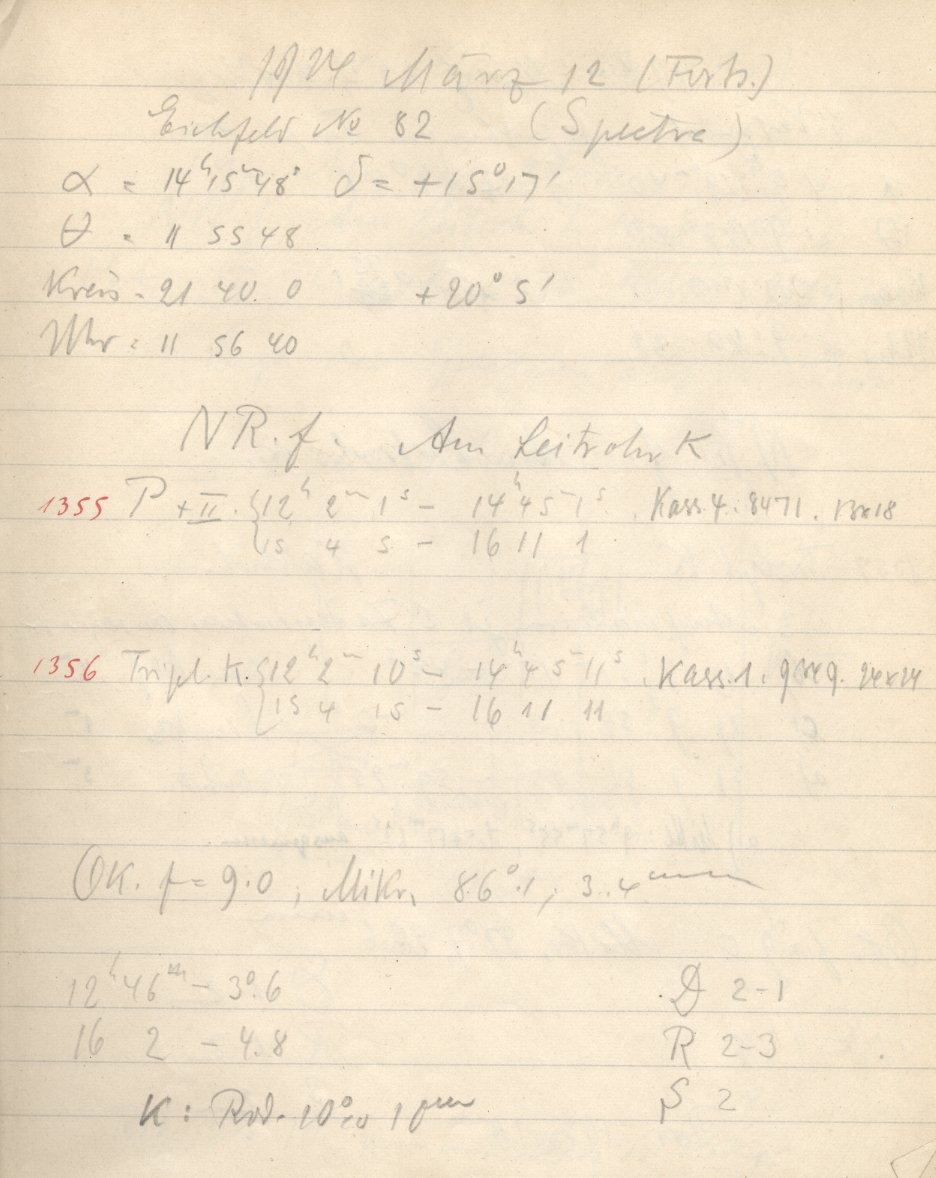 1924 März 12 (Forts.)
Eichfeld No 82 (Spectra)
α = 14h 15m 48s δ = +15° 17'
θ = 11 55 48
Kreis = 21 40. 0 +20° 5'
Uhr = 11 56 40
NR. f. Am Leitrohr K
1355 P + II. {12h 2m 1s – 14h 45m 1s. Kass. 4. 8471. 13x18
15 4 5 – 16 11 1
1356 Tripl. K. {12h 2m 10s – 14h 45m 11s. Kass. 1. 24x24
15 4 15 – 16 11 11
OK. f = 9.0, Mikr. 86°.1, 3.4mm
12h 46m – 3°.6 D 2-1
16 2 – 4.8 R 2-3
K: S 2